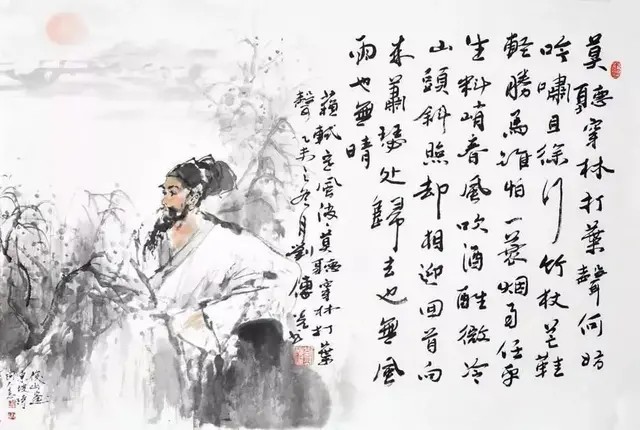 莫聽穿林打葉聲何妨
吟嘯且徐行竹杖芒鞋
輕勝馬誰怕一蓑烟雨任平
生料峭春風吹酒醒微冷
山頭斜照却相迎回首向
来蕭瑟处歸去也無風
雨也無晴
蘇軾定風波·莫聽穿林打葉
聲乙未之冬月劉傳書